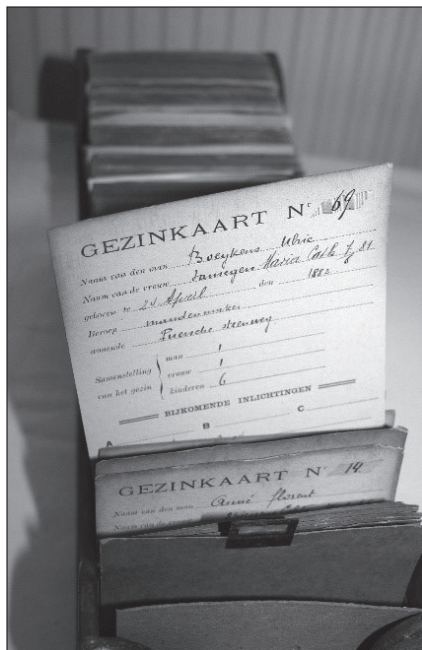 GEZINKAART Nr 69
Naam van den man Boeykens Ulric
Naam van de vrouw Maria Cath
geboren te 24 April den 1882
Beroep mandenmaker
wonende steenweg
man 1
Samenstelling vrouw 1
van het gezin kinderen 6
BIJKOMENDE INLICHTINGEN
A B C
GEZINKAART Nr 14.
Naam van den man Anné Florent
Naam van de vrouw